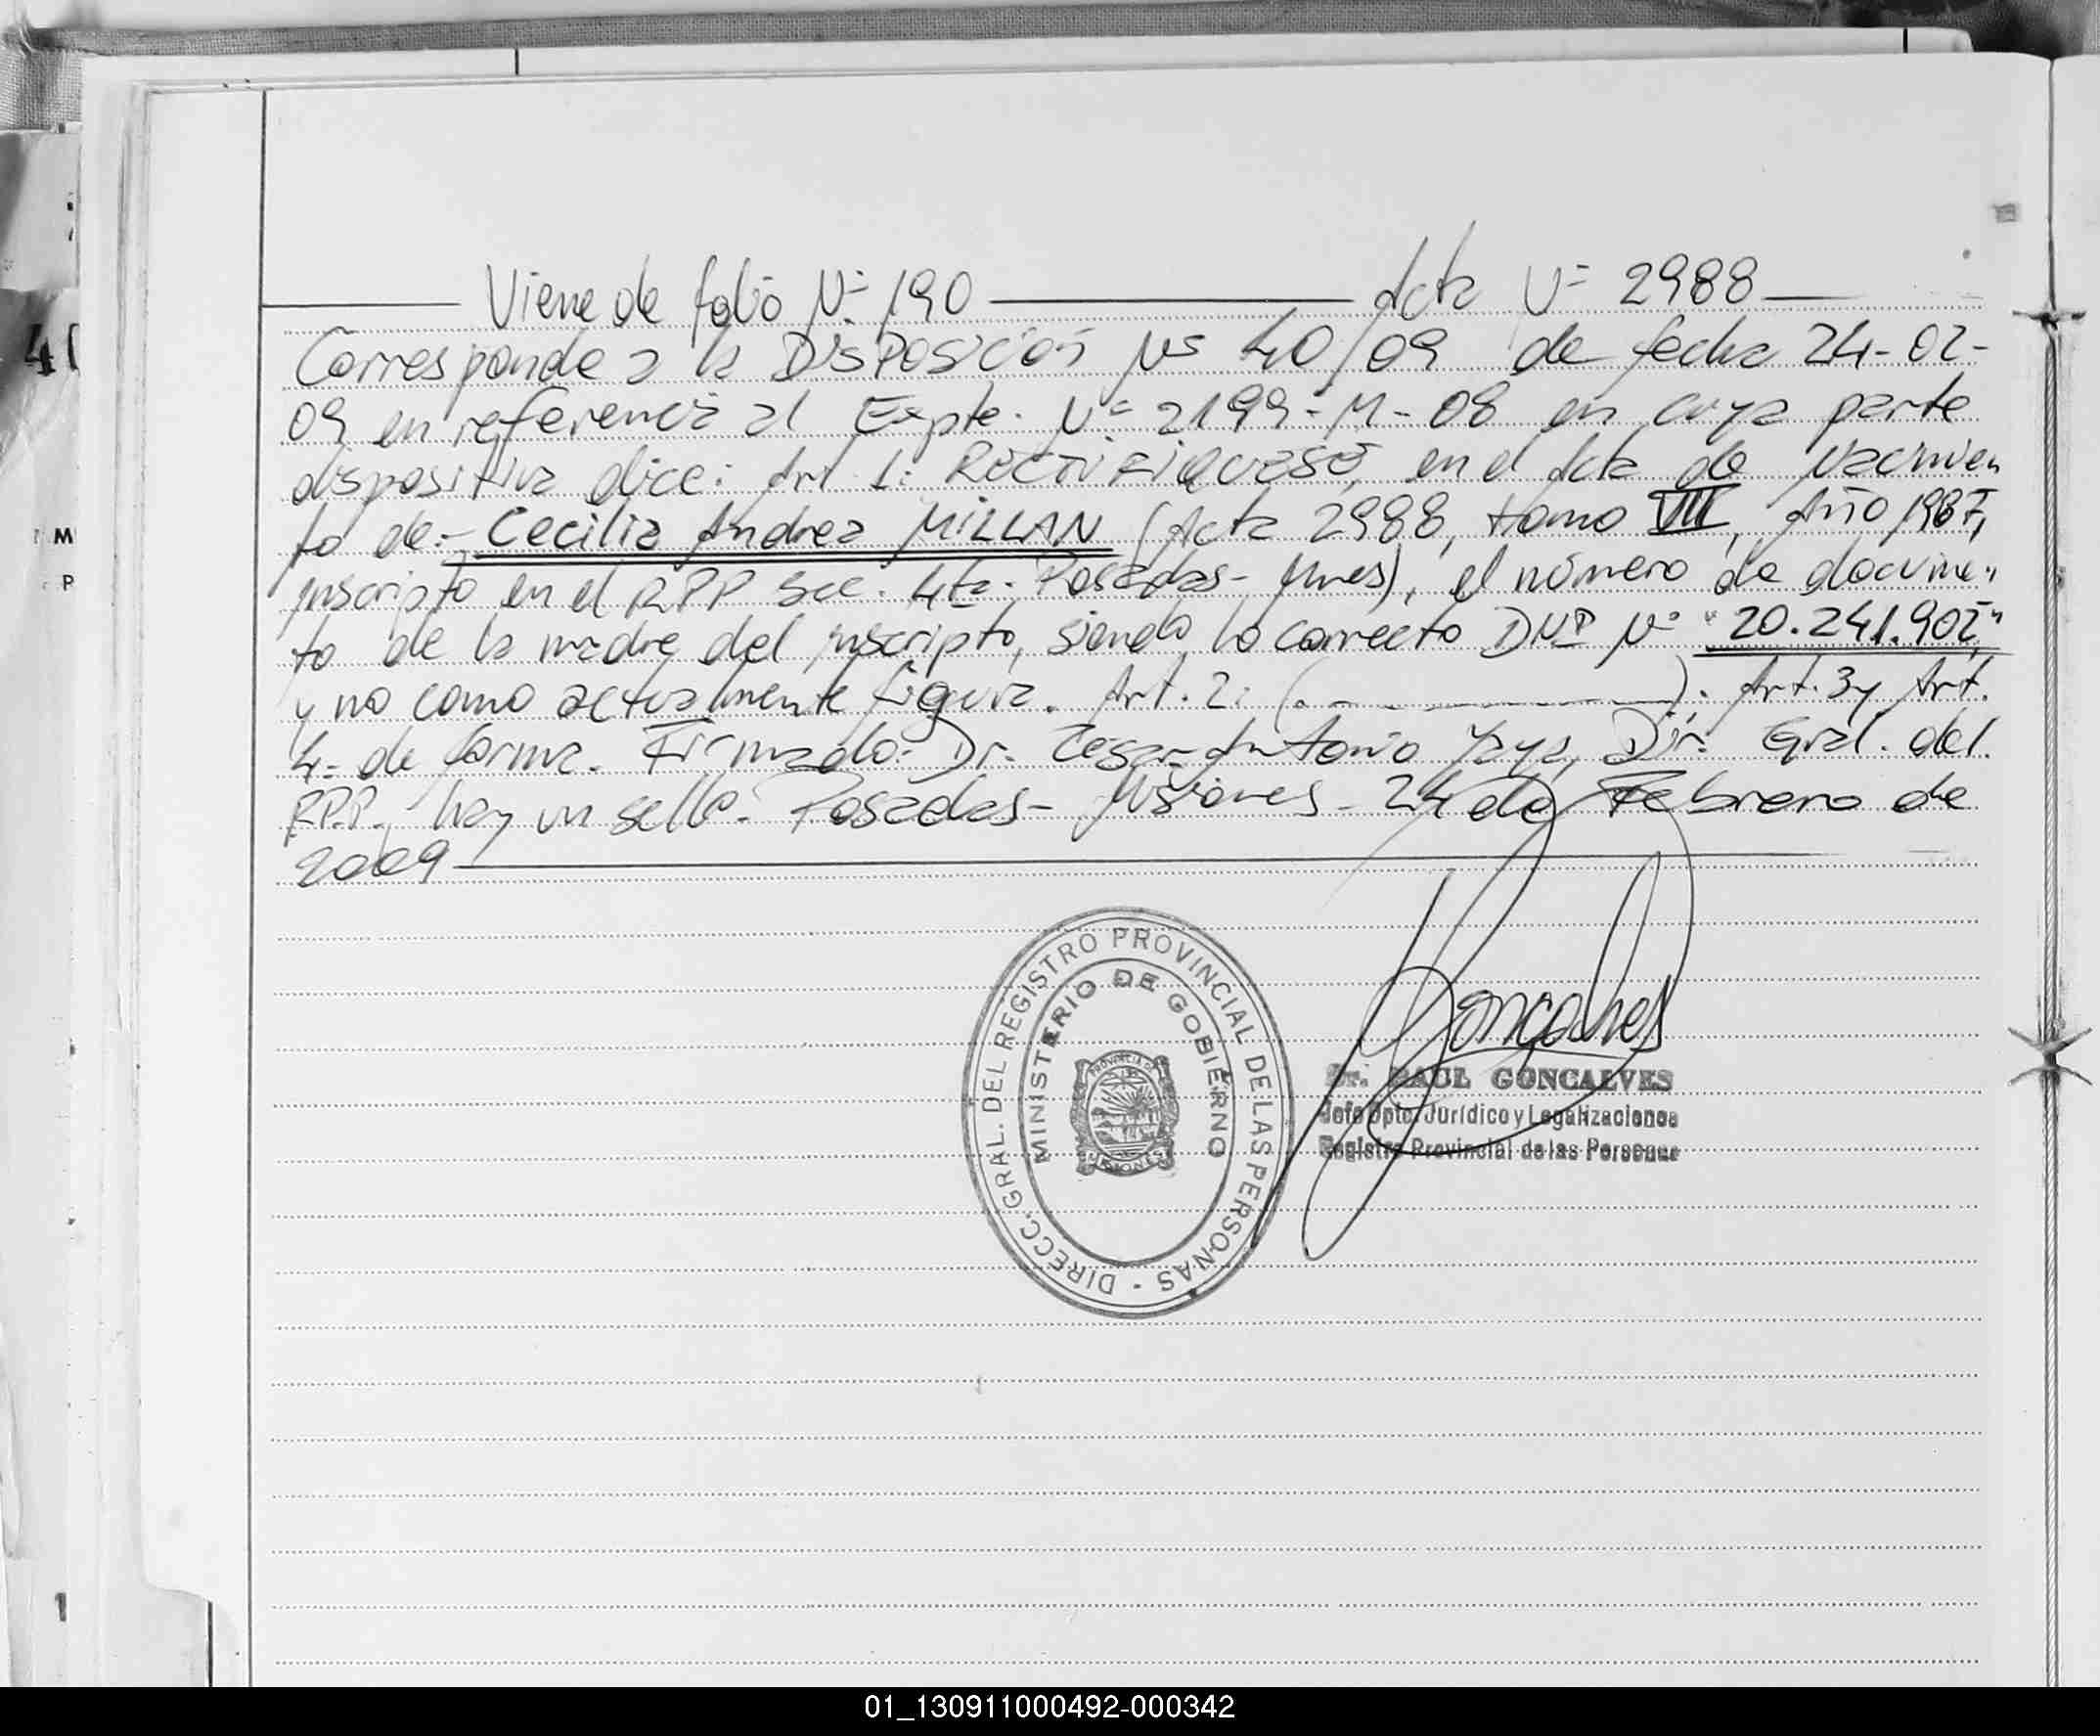 Viene de folio N° 190 — Acta N° 2988 —
Corresponde a la DISPOSICIÓN N° 40/09 de fecha 24-02-
09 en referencia al Expte. N° 2199-M-08 en cuya parte
dispositiva dice: Art. 1: RECTIFIQUESE, en el Acta de Nacimien
to de:- Cecilia Andrea MILLAN (Acta 2988, tomo VIII, Año 1987,
inscripto en el RPP Sec. 4ta. Posadas - Mnes), el número de documen
to de la madre del inscripto, siendo lo correcto DNI N° "20.241.902"
y no como actualmente figura. Art. 2: (. — ). Art. 3 y Art.
4- de forma. Firmado: Dr. Cesar Antonio Yaya, Dir. Gral. del
RPP. hay un sello. Posadas - Misiones - 24 de Febrero de
2009
DIRECC. GRAL. DEL REGISTRO PROVINCIAL DE LAS PERSONAS -
MINISTERIO DE GOBIERNO
PROVINCIA DE
MISIONES
Goncalves
Dr. RAUL GONCALVES
Jefe Dpto. Jurídico y Legalizaciones
Registro Provincial de las Personas
4
M
P
1
01_130911000492-000342